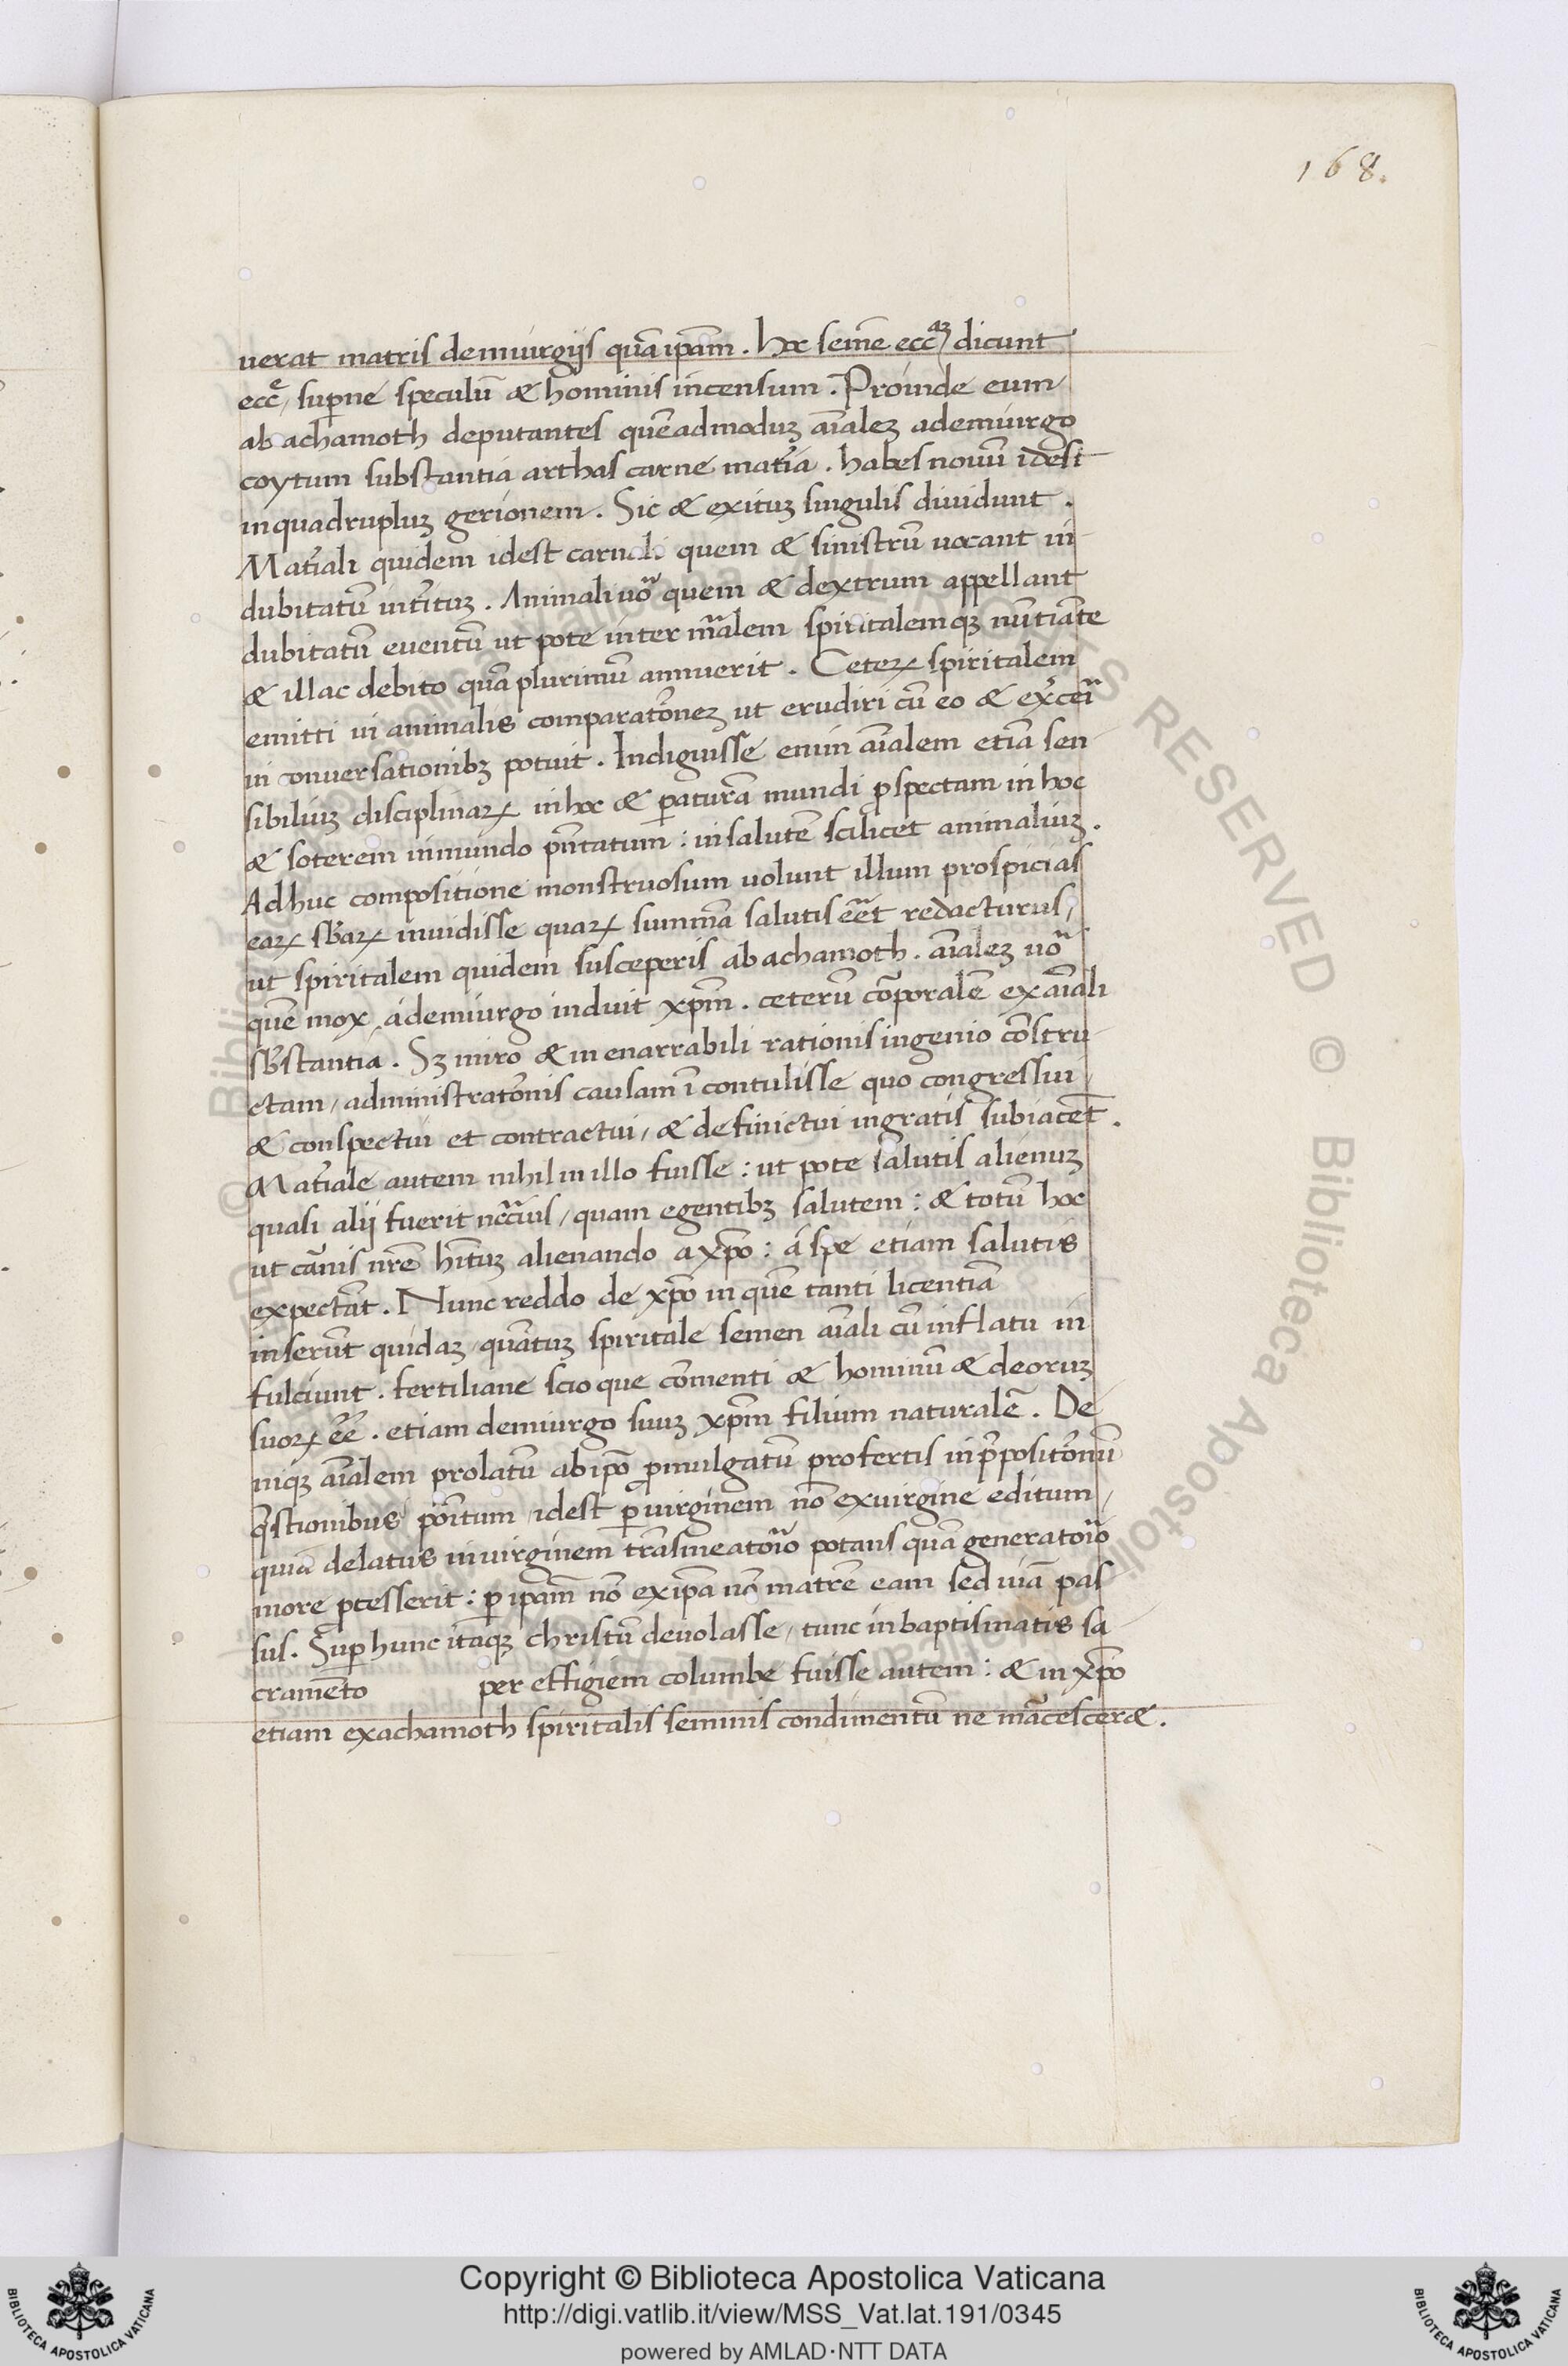 168.
uerat matris demiurgijs quã ipãm. hoc semẽ eccãz dicunt
eccẽ, supne speculũ & hominis incensum. Proinde eum
ab achamoth deputantes quẽadmoduz aĩalez ademiurgo
coytum substantia arthas carne matĩa. habes nouũ idest
inquadrupluz gerionem. Sic & exituz singulis diuidunt.
Matĩali quidem idest carnali quem & sinistrũ uocant in
dubitatũ intĩtuz. Animali uõ quem & dextrum appellant
dubitatũ euentũ ut pote inter mãlem spiritalemqz nũtiãte
& illac debito quã plurimũ annuerit. Ceteꝝ spiritalem
emitti in animalis comparatõnez ut erudiri cũ eo & exc̃eri
in conuersationibz potuit. Indiguisse enim aĩalem etiã sen
sibiliuz disciplinaꝝ inhoc & paturã mundi pspectam in hoc
& soterem inmundo pñtatum: insalutẽ scilicet animaliuz.
Adhuc compositione monstruosum uolunt illum prospicias
eaꝝ sb̃aꝝ inuidisse quaꝝ summã salutis eẽt redacturus,
ut spiritalem quidem susceperis ab achamoth. aĩalez uõ
quẽ mox ademiurgo induit xp̃m. ceterũ cõporalẽ ex aĩali
sb̃stantia. Sz miro & inenarrabili rationis ingenio cõstru
ctam, administratõnis causam ĩ contulisse quo congressui,
& conspectui et contractui, & definictui ingratis subiacẽt.
Matĩale autem nihil in illo fuisse: ut pote salutis alienuz
quasi alij fuerit nc̃cius, quam egentibz salutem: & totũ hoc
ut cãnis nr̃e hĩtuz alienando a xp̃o: á spe etiam salutis
expectãt. Nunc reddo de xp̃o in quẽ tanti licentiã
inserũt quidaz quãtuz spiritale semen aĩali cũ inflatu in
fulciunt. fertiliane scio que cõmenti & hominũ & deoruz
suoꝝ eẽ. etiam demiurgo suuz xp̃m filium naturalẽ. De
niqz aĩalem prolatũ ab ip̃o pmulgatũ profertis inp̃positõnũ
q̃stionibus põitum idest p uirginem nõ exuirgine editum,
quia delatus inuirginem trãsmeatorio potaus quã generatorio
more pcesserit: p ipãm nõ exip̃a nõ matrẽ eam sed uiã pas
sus. Sup hunc itaqz christũ deuolasse, tunc inbaptismatis sa
cramẽto per effigiem columbe fuisse autem: & in xp̃o
etiam exachamoth spiritalis seminis condimentũ ne mãcesceræ.
Copyright © Biblioteca Apostolica Vaticana
http://digi.vatlib.it/view/MSS_Vat.lat.191/0345
powered by AMLAD·NTT DATA